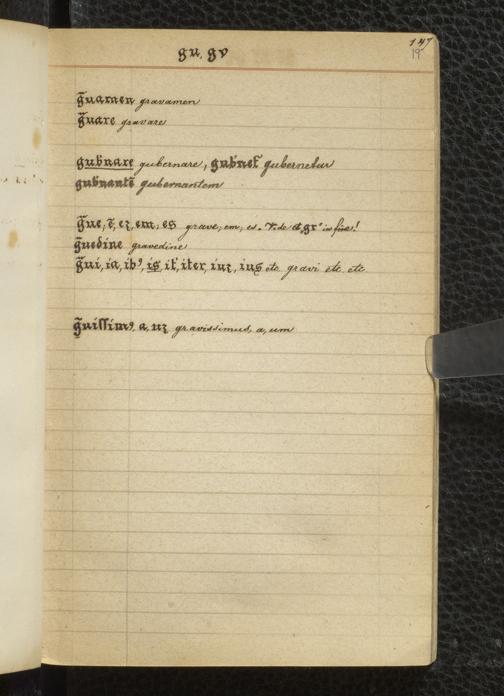 gu, gv
147
19
g̃uamen gravamen
g̃uare gravare
gub̃nare gubernare, gub̃net̃ gubernetur
gub̃nantẽ gubernantem
g̃ue, ẽ, eʒ, em, es grave, em, es. V. de et gr' in fine!
g̃uedine gravedine
g̃ui, ia, ibꝰ, is, it̃, iter, iuʒ, ius etc gravi etc etc
g̃uissimꝰ, a, uʒ gravissimus, a, um